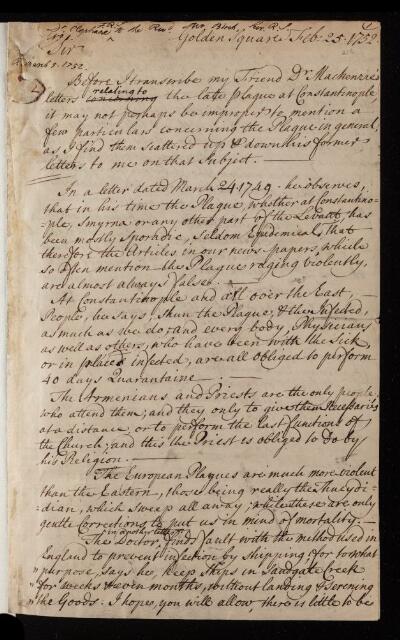 Dr. Clephane F.R.S. to the Revd. Mr. Birch, Secr. R.S.
Golden Square Feb. 25. 1752
Sir
2
Before I transcribe my Friend Dr. Mackenzie's
letters relating to concerning the late plague at Constantinople
it may not perhaps be improper to mention a
few particulars concerning the Plague in general,
as I find them scattered up & down his former
letters to me on that Subject.
In a letter dated March 24. 1749. he observes,
that in his time the Plague, whether at Constantino=
=ple, Smyrna or any other part of the Levant, has
been mostly Sporadic, Seldom Epidemical; that
therefore the Articles in our news-papers, which
so often mention the Plague raging violently,
are almost always false.
At Constantinople and all over the East,
People, he says, Shun the Plague, & the Infected,
as much as we do; and every body, Physicians
as well as others, who have been with the Sick,
or in places infected, are all obliged to perform
40 days Quarantaine
The Armenians and Priests are the only people,
who attend them; and they only to give them Necessaries
at a distance, or to perform the last functions of
the Church; and this the Priest is obliged to do by
his Religion.
The European Plagues are much more violent
than the Eastern, those being really the Thucydi=
=dian, which sweep all away; while these are only
gentle Corrections to put us in mind of mortality.
in another letter
The Doctor finds fault with the method used in
England to prevent infection by Shipping; for to what
"purpose, says he, keep Ships in Sandgate Creek
"for weeks & even months, without landing & Serening
"the Goods. I hope, you will allow there is little to be